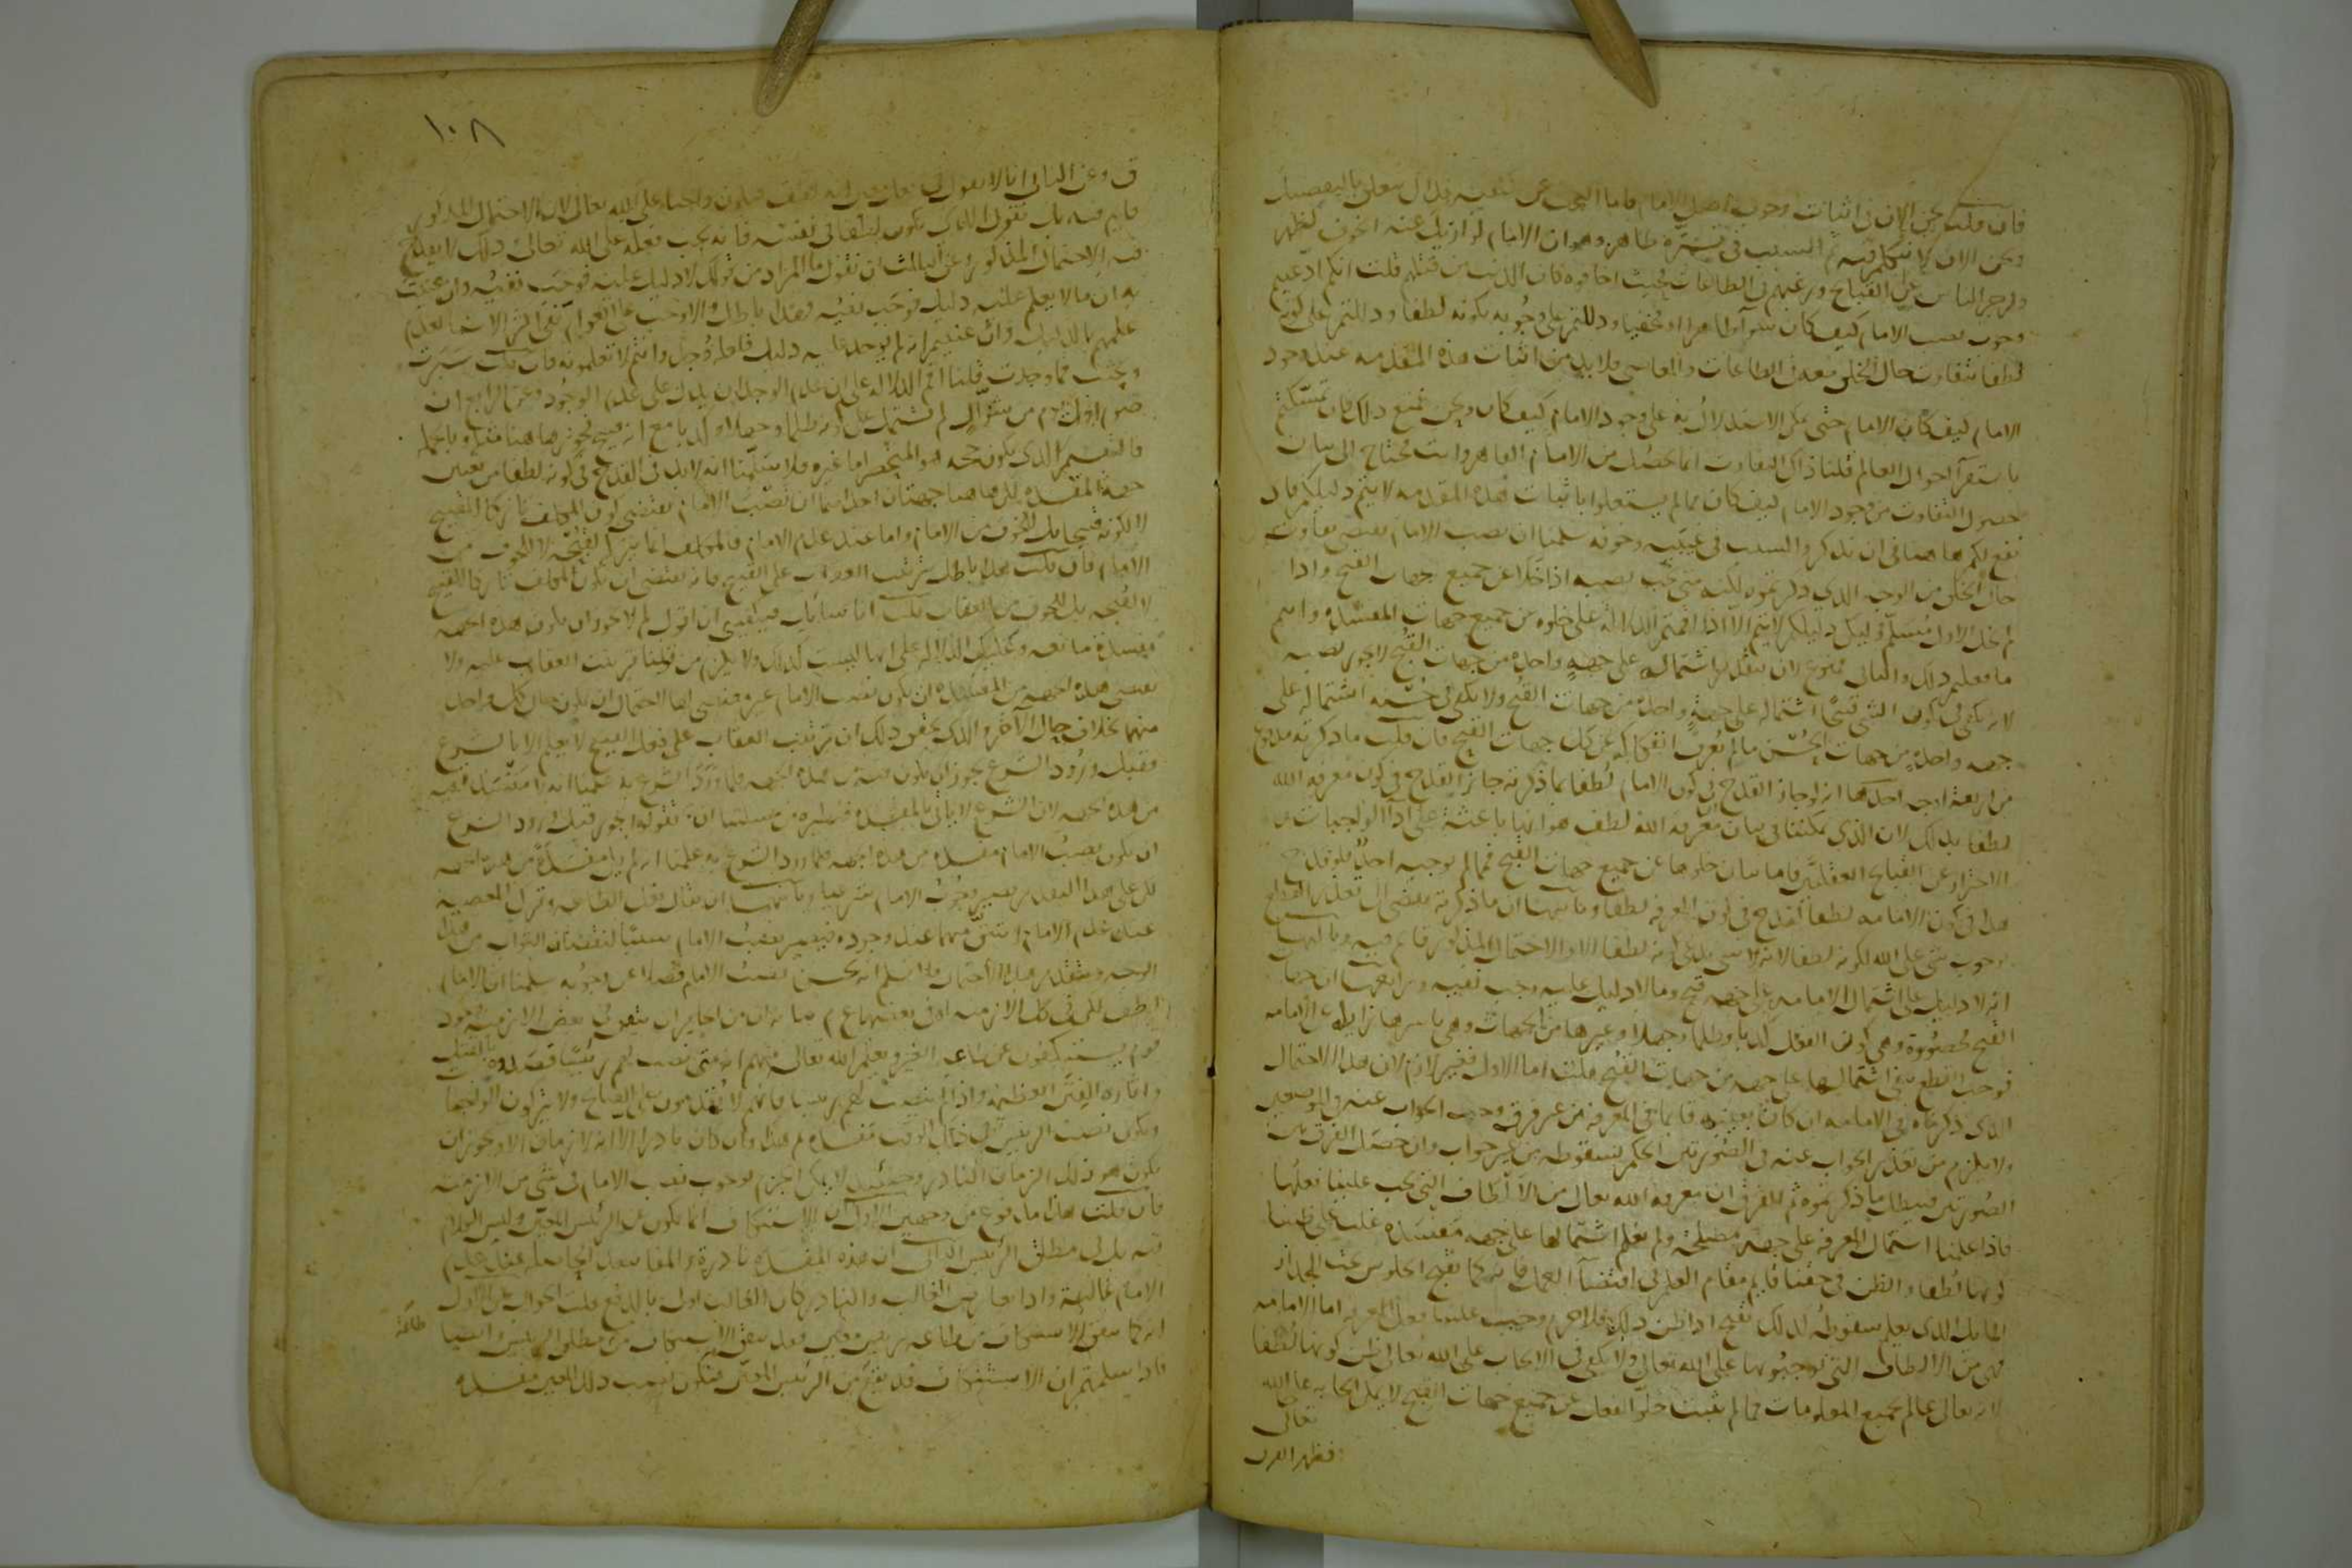 فان قلت نحن الان فى اثبات وجوب اصل الامام فاما البحث عن تعينه فذاك يتعلق بالتفصيل
ونحن الان لا نتكلم فيه ثم السبب فى تستره ظاهر وهو ان الامام لو ازيل عنه الخوف لظهر
ولزجر الناس عن القبايح ورغبهم فى الطاعات بحيث اخافوه كان الذنب من قبلهم قلت انكم ادعيتم
وجوب نصب الامام كيف كان سوآ ظاهرا او مخفيا ودللتم على وجوبه بكونه لطفا ودللتم على كونه
لطفا بتفاوت حال الخلق معه فى الطاعات والمعاصى فلا بد من اثبات هذه المقدمه عند وجود
الامام كيف كان الامام حتى يمكن الاستدلال به على وجود الامام كيف كان ونحن نمنع ذلك فان تمسكتم
باستقرآ احوال العالم قلنا ذاك التفاوت انما يحصل من الامام القاهر وانت محتاج الى بيان
حصول التفاوت من وجود الامام كيف كان فما لم يشتغلوا باثبات هذه المقدمه لا يتم دليلكم فاذن
نفع لكم هاهنا فى ان تذكروا السبب فى غيبته وخوفه سلمنا ان نصب الامام يقتضى تفاوت
حال الخلق من الوجه الذى ذكرتموه لكنه متى يجب نصبه اذا خلا عن جميع جهات القبح او اذا
لم يخل الاول مسلم ولكن دليلكم لا يتم الا اذا اقمتم الدلاله على خلوه من جميع جهات المفسده وانتم
ما فعلتم ذلك والثانى ممنوع لان بتقدير اشتماله على جهة واحدة من جهات القبح لا يجوز نصبه
لانه يكفى فى كون الشى قبيحا اشتماله على جهة واحدة من جهات القبح ولا يكفى فى حسنه اشتماله على
جهه واحدة من جهات الحسن ما لم يعرف انفكاكه عن كل جهات القبح فان قلت ما ذكرته مدفوع
من اربعة اوجه احدها انه لو جاز القدح فى كون الامام لطفا بما ذكرته جاز القدح فى كون معرفه الله
لطفا بذلك لان الذى يمكننا فى بيان معرفة الله لطف هو انها باعثة على ادآ الواجبات و
الاحتراز عن القبايح العقليه فاما بيان خلوها عن جميع جهات القبح فما لم يوجبه احد فلو قدح
هذا فى كون الامامه لطفا لقدح فى كون المعرفه لطفا وثانيها ان ما ذكرته يفضى الى تعذر القطع
بوجوب شى على الله لكونه لطفا لانه لا شى يدعى كونه لطفا الا والاحتمال المذكور قائم فيه وثالثها
انه لا دليل على اشتمال الامامه على جهه قبح وما لا دليل عليه وجب نفيه ورابعها ان جهات
القبح محصورة وهى كون الفعل كذبا وظلما وجهلا وغيرها من الجهات وهى باسرها زايله عن الامامه
فوجب القطع بنفى اشتمالها على جهه من جهات القبح قلت اما الاول فغير لازم لان هذا الاحتمال
الذى ذكرناه فى الامامه ان كان بعينه قايما فى المعرفه من غير فرق وجب الجواب عنه فى الموضعين
ولا يلزم من تعذر الجواب عنه فى الصورتين الحكم بسقوطه من غير جواب وان حصل الفرق بين
الصورتين فبطل ما ذكرتموه ثم الفرق ان معرفه الله تعالى من الالطاف التى يجب علينا فعلها
فاذا علمنا اشتمال المعرفه على جهة مصلحة ولم نعلم اشتمالها على جهه مفسده غلب على ظننا
كونها لطفا والظن فى حقنا قايم مقام العلم فى اقتضآ العمل فانه كما يقبح الجلوس تحت الجدار
المايل الذى يعلم سقوطه كذلك يقبح اذا ظن ذلك فلا جرم وجب علينا فعل المعرفه اما الامامه
فهى من الالطاف التى توجبونها على الله تعالى ولا يكفى فى الايجاب على الله تعالى ظن كونها لطفا
لانه تعالى عالم بجميع المعلومات فما لم يثبت خلو الفعل عن جميع جهات القبح لا يمكن ايجابه على الله
تعالى
فظهر الفرق
١٠٨
ق وعن الثانى انا لا نقول فى فعل معين انه لطف فيكون واجبا على الله تعالى لان الاحتمال المذكور
قايم فيه بل نقول الذى يكون لطفا فى نفسه فانه يجب فعله على الله تعالى وذلك لا يقدح
فيه الاحتمال المذكور وعن الثالث ان نقول ما المراد من قولك لا دليل عليه فوجب نفيه وان عنيت
به ان ما لا يعلم عليه دليل فوجب نفيه فهذا باطل والا وجب على العوام نفى اكثر الاشيا لعدم
علمهم بالدليل وان عنيتم انه لم يوجد عليه دليل فلعله وجد وانتم لا تعلمونه فان قلت سبرت
وبحثت فما وجدت قلنا اقم الدلاله على ان عدم الوجدان يدل على عدم الوجود وعن الرابع ان
صوم اول يوم من شوال لم يشتمل على كونه ظلما وجهلا وكذبا مع انه قبيح فجوز هاهنا مثله وبالجمله
فالتقسيم الذى يكون حجه هو المنحصر اما غيره فلا سلمنا انه لا بد فى القدح فى كونه لطفا من تعيين
جهة المفسده لكن هاهنا جهتان احداهما ان نصب الامام يقتضى كون المكلف تاركا للقبيح
لا لكونه قبيحا بل للخوف من الامام واما عند عدم الامام فالمكلف انما يترك القبيح لقبحه لا للخوف من
الامام فان قلت هذا باطل بترتب العقاب على القبيح فانه يقتضى ان يكون المكلف تاركا للقبيح
لا لقبحه بل للخوف من العقاب قلت انا سائل فيكفينى ان اقول لم لا يجوز ان يكون هذه الجهه
مفسدة مانعه وعليكم الدلاله على انها ليست كذلك ولا يلزم من قولنا ترتب العقاب عليه ولا
يقتضى هذه الجهه من المفسده ان يكون نصب الامام غير مقتضى لها لاحتمال ان يكون حال كل واحد
منهما بخلاف حال الآخر والذى يحقق ذلك ان ترتب العقاب على فعل القبيح لا يعلم الا بالشرع
وقبل ورود الشرع يجوز ان يكون فيه هذه الجهه فلما ورد الشرع به علمنا انه لا مفسده فيه
من هذه الجهه لان الشرع لا ياتى بالمفسده فنظيره من مسئلتنا ان نقول يجوز قبل ورود الشرع
ان يكون نصب الامام مفسده من هذه الجهه فلما ورد الشرع به علمنا انه لم يكن مفسدة من هذه الجهه
لكن على هذا التقدير يصير وجوب الامام شرعيا وثانيهما ان يقال فعل الطاعه وترك المعصيه
عند عدم الامام اشق منهما عند وجوده فيصير نصب الامام سببا لنقصان الثواب من هذا
الوجه وبتقدير هذا الاحتمال لا نسلم انه يحسن نصب الامام فضلا عن وجوبه سلمنا ان الامام
لطف لكن فى كل الازمنه او فى بعضها ع م بيانه ان من الجايز ان يتفق فى بعض الازمنه وجود
قوم يستنكفون عن طاعه الغير ويعلم الله تعالى منهم انه متى نصب لهم رئيسا قصدوه بالقتل
واثارة الفتن العظيمه واذا لم ينصب لهم رئيسا فانهم لا يقدمون على القبايح ولا يتركون الواجبات
ويكون نصب الرئيس فى ذلك الوقت مفسده ثم هذا وان كان نادرا الا انه لا زمان الا ويجوز ان
يكون هو ذلك الزمان النادر وحينئذ لا يمكن الجزم بوجوب نصب الامام فى شى من الازمنه
فان قلت هذا مدفوع من وجهين الاول ان الاستنكاف انما يكون عن الرئيس المعين وليس الكلام
فيه بل فى مطلق الرئيس الثانى ان هذه المفسده نادرة والمفاسد الحاصله عند عدم
الامام غالبة واذا تعارض الغالب والنادر كان الغالب اولى بالدفع قلت الجواب عن الاول
انه كما يتفق الاستنكاف من طاعه رئيس معين فقد يتفق الاستنكاف من مطلق الرئيس وايضا
فاذا سلمتم ان الاستنكاف قد يقع من الرئيس المعين فيكون نصب ذلك المعين مفسده